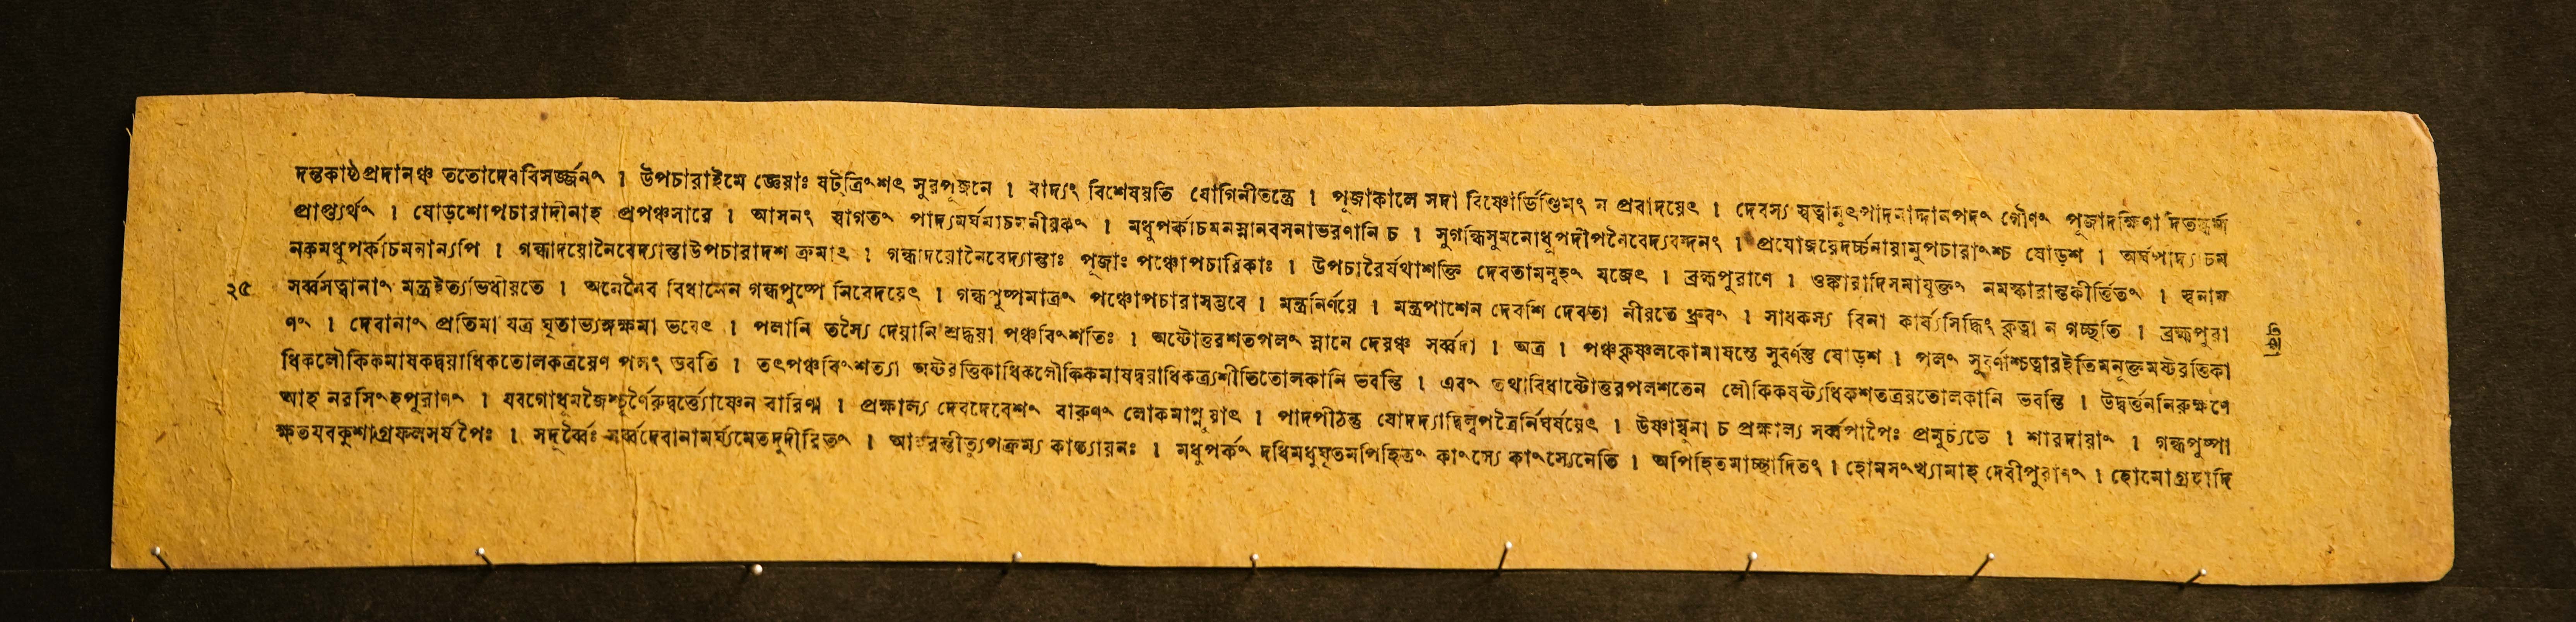 দন্তকাষ্ঠপ্রদানঞ্চ ততোদেববিসর্জ্জনং । উপচারাইমে জ্ঞেয়াঃ ষট্ত্রিংশৎ সুরপূজনে । বাদ্যং বিশেষয়তি যোগিনীতন্ত্রে । পূজাকালে সদা বিষ্ণোর্ডিণ্ডিমং ন প্রবাদয়েৎ । দেবস্য স্বত্বানুৎপাদনাদ্দানপদং গৌণং পূজাদক্ষিণা
প্রাপ্ত্যর্থং । ষোড়শোপচারাদীনাহ প্রপঞ্চসারে । আসনং স্বাগতং পাদ্যমর্ঘমাচমনীয়কং । মধুপর্কাচমনস্নানবসনাভরণানি চ । সুগন্ধিসুমনোধূপদীপনৈবেদ্যবন্দনং । প্রযোজয়েদর্চ্চনায়ামুপচারাংশ্চ ষোড়শ । অর্ঘপাদ্যাচম
নকমধুপর্কাচমনান্যপি । গন্ধাদয়োনৈবেদ্যান্তাউপচারাদশ ক্রমাৎ । গন্ধাদয়োনৈবেদ্যান্তাঃ পূজাঃ পঞ্চোপচারিকাঃ । উপচারৈর্যথাশক্তি দেবতামন্বহং যজেৎ । ব্রহ্মপুরাণে । ওঙ্কারাদিসমাযুক্তং নমস্কারান্তকীর্ত্তিতং । স্বনাম
২৫ সর্ব্বসত্বানাং মন্ত্রইত্যভিধীয়তে । অনেনৈব বিধানেন গন্ধপুষ্পে নিবেদয়েৎ । গন্ধপুষ্পমাত্রং পঞ্চোপচারাসম্ভবে । মন্ত্রনির্ণয়ে । মন্ত্রপাশেন দেবশি দেবতা নীয়তে ধ্রুবং । সাধকস্য বিনা কার্য্যসিদ্ধিং কৃত্বা ন গচ্ছতি । ব্রহ্মপুরা
ণং । দেবানাং প্রতিমা যত্র ঘৃতাভ্যঙ্গক্ষমা ভবেৎ । পলানি তস্যৈ দেয়ানি শ্রদ্ধয়া পঞ্চবিংশতিঃ । অষ্টোত্তরশতপলং স্নানে দেয়ঞ্চ সর্ব্বদা । অত্র । পঞ্চকৃষ্ণলকোমাষস্তে সুবর্ণস্তু ষোড়শ । পলং সুবর্ণাশ্চত্বারইতিমনূক্তমষ্টরত্তিকা
ধিকলৌকিকমাষকদ্বয়াধিকতোলকত্রয়েণ পলং ভবতি । তৎপঞ্চবিংশত্যা অষ্টরত্তিকাধিকলৌকিকমাষদ্বয়াধিকত্র্যশীতিতোলকানি ভবন্তি । এবং তথাবিধাষ্টোত্তরপলশতেন লৌকিকষষ্ট্যধিকশতত্রয়তোলকানি ভবন্তি । উদ্বর্ত্তননিরুক্ষণে
আহ নরসিংহপুরাণং । যবগোধূমজৈশ্চূর্ণৈরুদ্বর্ত্ত্যোষ্ণেন বারিণা । প্রক্ষাল্য দেবদেবেশং বারুণং লোকমাপ্নুয়াৎ । পাদপীঠন্তু যোদদ্যাদ্বিল্বপত্রৈর্নিঘর্ষয়েৎ । উষ্ণাম্বুনা চ প্রক্ষাল্য সর্ব্বপাপৈঃ প্রমুচ্যতে । শারদায়াং । গন্ধপুষ্পা
ক্ষতযবকুশাগ্রফলসর্ষপৈঃ । সদূর্ব্বৈঃ সর্ব্বদেবানামর্ঘ্যমেতদুদীরিতং । আহরন্তীত্যুপক্রম্য কাত্যায়নঃ । মধুপর্কং দধিমধুঘৃতমপিহিতং কাংস্যে কাংস্যেনেতি । অপিহিতমাচ্ছাদিতং । হোমসংখ্যামাহ দেবীপুরাণং । হোমোগ্রহাদি